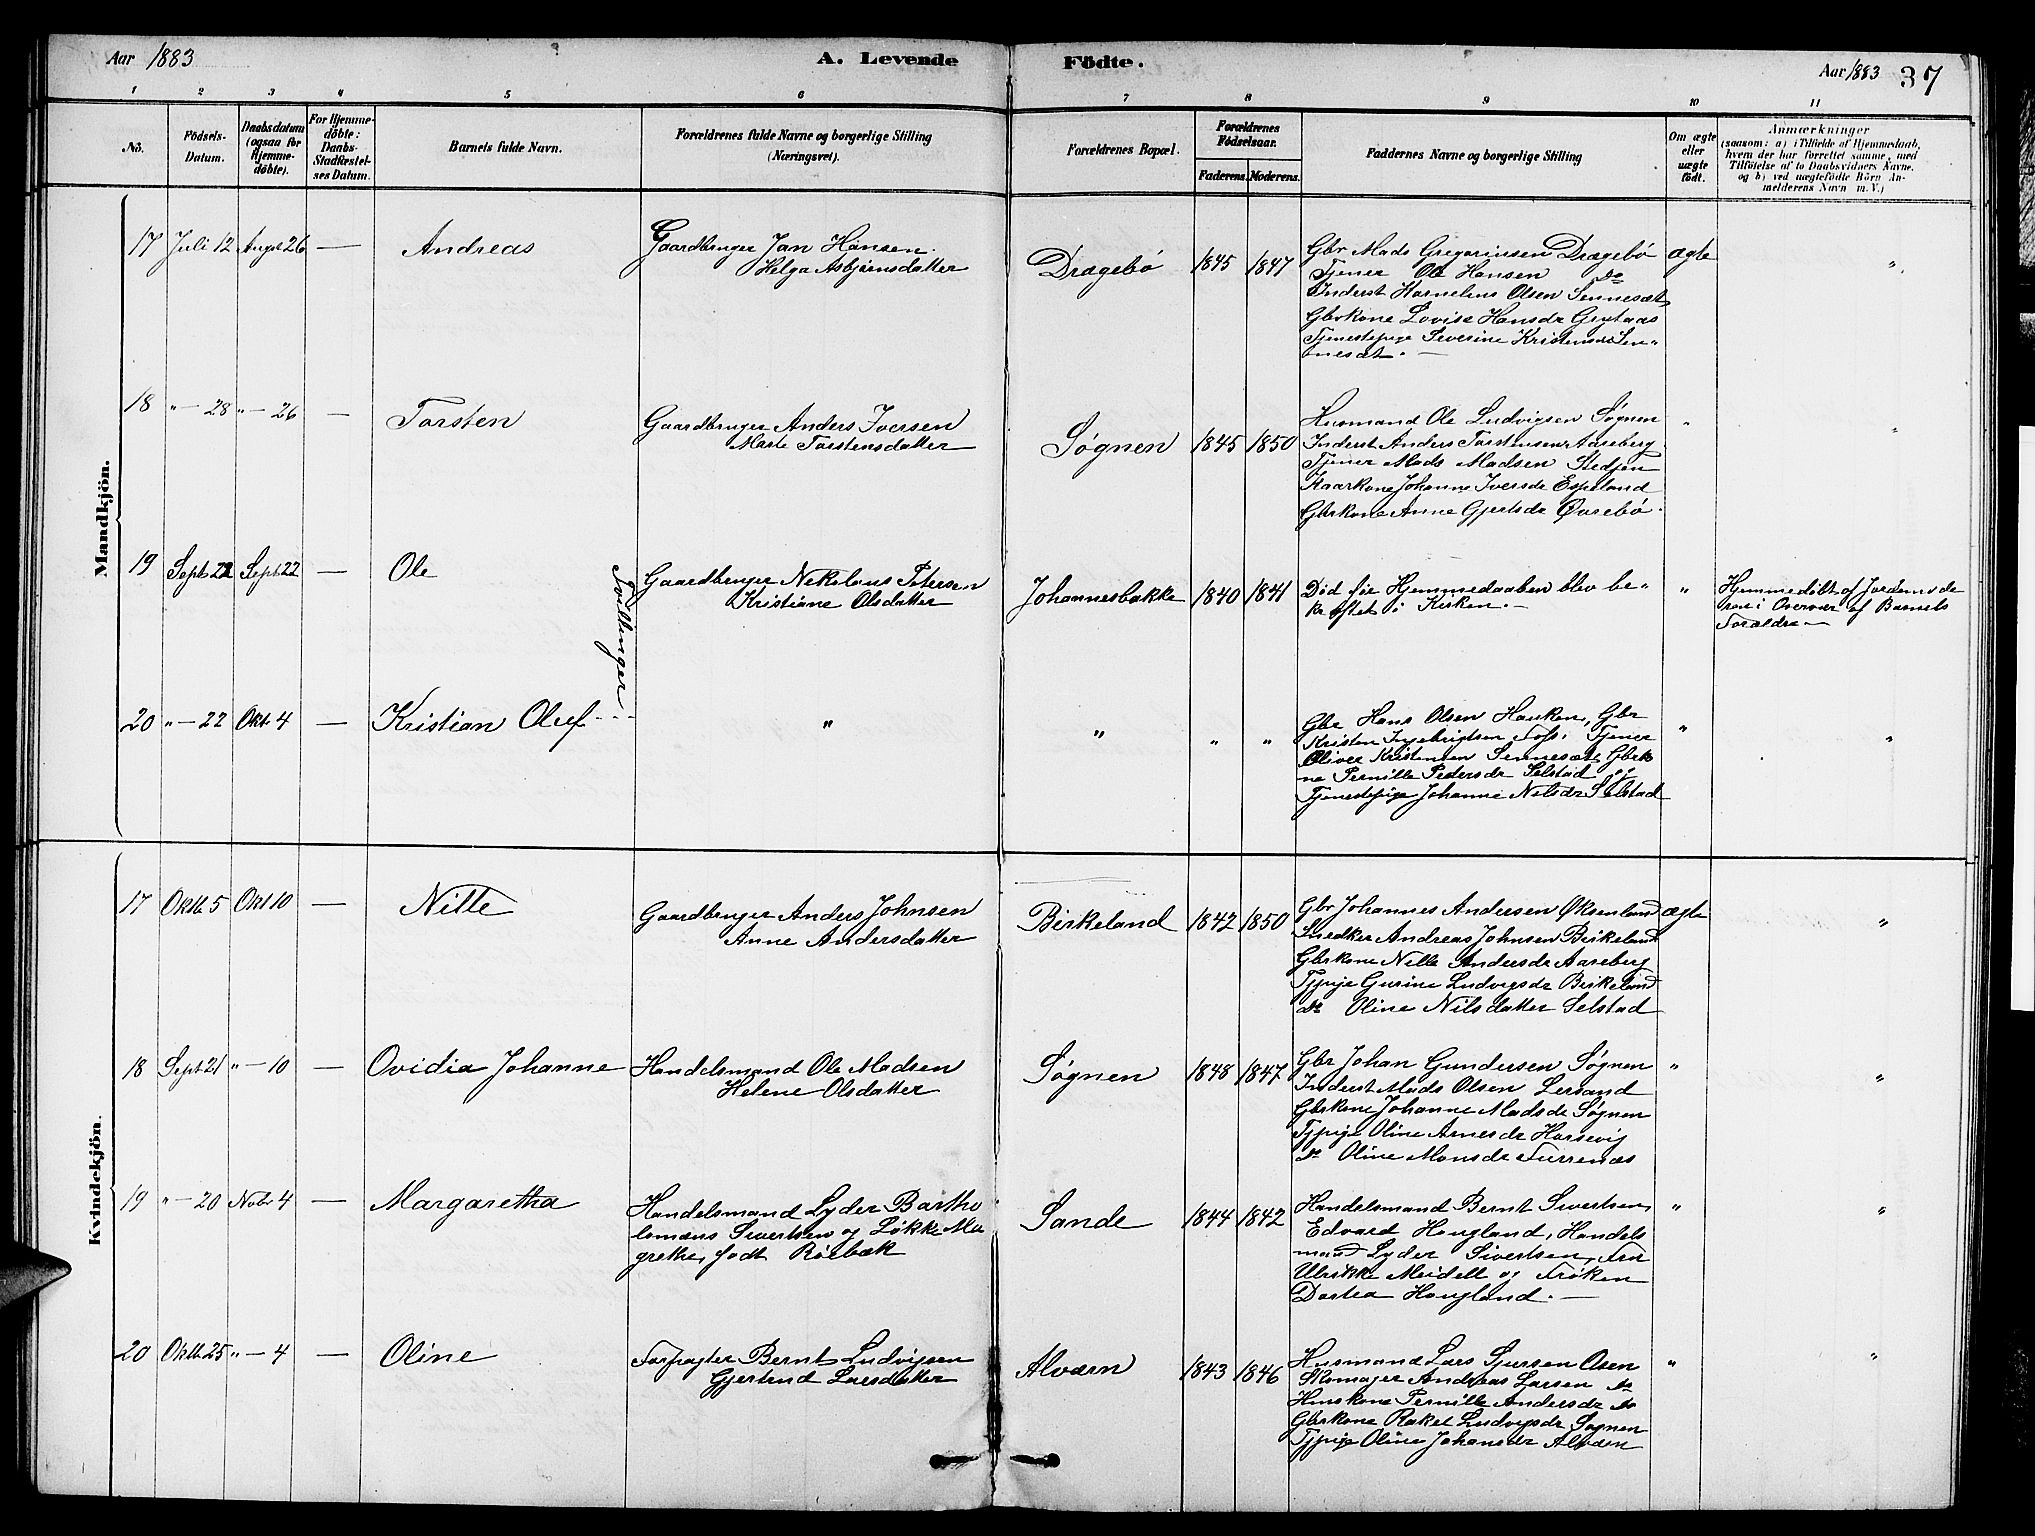 Aar 1883
A. Levende Fødte.
Aar 1883 37
1 2 3 4 5 6 7 8 9 10 11
No.
Fødsels-Datum.
Daabsdatum (ogsaa for Hjemmedøbte).
For Hjemmedøbte: Daabs-Stadfæstelses Datum.
Barnets fulde Navn.
Forældrenes fulde Navne og borgerlige Stilling (Næringsvei).
Forældrenes Bopæl.
Forældrenes Fødselsaar.
Faderens. Moderens.
Faddernes Navne og borgerlige Stilling
Om ægte eller uægte født.
Anmærkninger
(saasom: a) i Tilfælde af Hjemmedaab, hvem der har forrettet samme, med Tilføielse af to Daabsvidners Navne, og b) ved uægtefødte Børn Anmelderens Navn m. V.)
Mandkjön.
17 Juli 12 Augst 26 — Andreas
Gaardbruger Jan Hansen
Helga Asbjørnsdatter
Dragebø 1845 1847
Gbr Mads Gregoriusen Dragebø
Tjener Ole Hansen do
Inderst Kornelius Olsen Sennesæt
Gbrkone Lovise Hansdr Grytaas
Tjenestepige Severine Kristensdr Sen-
nesæt. —
ægte "
18 " — 28 " — 26 — Torsten
Gaardbruger Anders Iversen
Marte Torstensdatter
Søgnen 1845 1850
Husmand Ole Ludvigsen Søgnen
Inderst Anders Torstensen Aaseberg
Tjener Mads Madsen Stedjen
Kaarkone Johanne Iversdr Espeland
Gbrkone Anne Gjertsdr Øvrebø.
" "
19 Sept 22 Sept 22 — Ole
Tvillinger
Gaardbruger Nikolaus Petersen
Kristiane Olsdatter
Johannesbakke 1840 1841
Død før Hjemmedaaben blev be-
kræftet i Kirken. —
"
Hjemmedøbt af Jordemode
ren i Overvær af Barnets
Forældre —
20 " — 22 Okt 4 — Kristian Oluf - - -
" " " "
Gbr Hans Olsen Hauken, Gbr
Kristen Ingebrigtsen Foss, Tjener
Oliver Kristensen Sennesæt, Gbrko
ne Pernille Pedersdr Selstad og
Tjenestepige Johanne Nilsdr Selstad
" "
Kvindekjön.
17 Oktb 5 Okt 10 — Nille
Gaardbruger Anders Johnsen
Anne Andersdatter
Birkeland 1842 1850
Gbr Johannes Andersen Øksenland
Snedker Andreas Johnsen Birkeland
Gbrkone Nille Andersdr Aaseberg
Tjpige Gurine Ludvigsdr Birkeland
do Oline Nilsdatter Selstad
ægte "
18 Sept 21 " — 10 — Ovidia Johanne
Handelsmand Ole Madsen
Helene Olsdatter
Søgnen 1848 1847
Gbr Johan Gundersen Søgnen
Inderst Mads Olsen Lersand
Gbrkone Johanne Madsdr Søgnen
Tjpige Oline Arnesdr Harsevig
do Oline Monsdr Furrenæs
" "
19 " — 20 Nobr 4 — Margaretha
Handelsmand Lyder Bartho
lomæus Sivertsen og Løkke Ma
grethe, født Risbæk
Sande 1844 1842
Handelsmand Bernt Sivertsen,
Edvard Hougland, Handels
mand Lyder Sivertsen, Fru
Ulrikke Meidell og Frøken
Dortea Hougland. —
" "
20 Oktb 25 " — 4 — Oline
Forpagter Bernt Ludvigsen
Gjertrud Larsdatter
Alværn 1843 1846
Husmand Lars Sjursen Osen
Skomager Andreas Larsen do
Huskone Pernille Andersdr do
Gbrkone Rakel Ludvigsdr Søgnen
Tjpige Oline Johansdr Alværn
" "